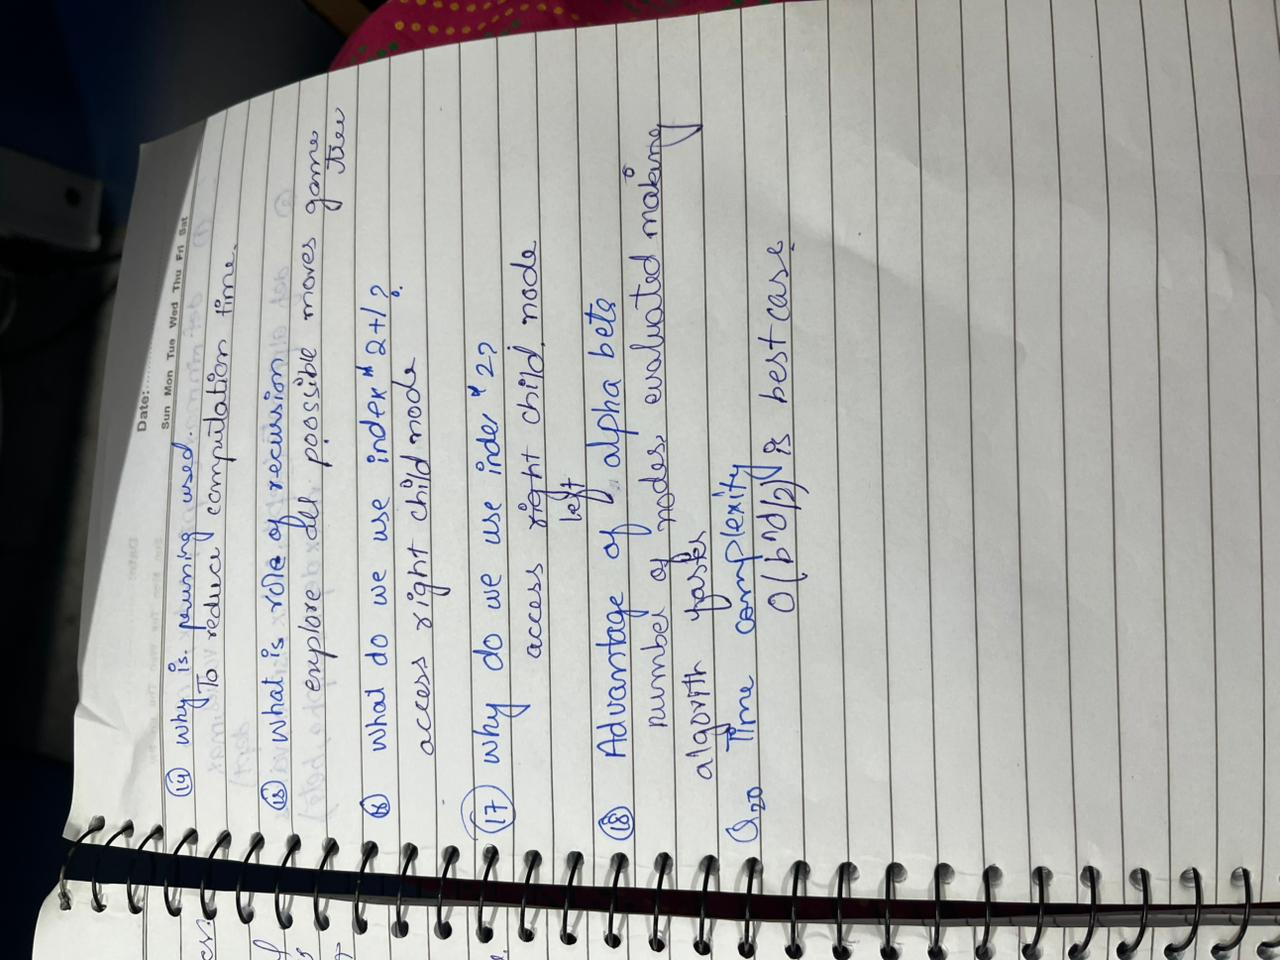 Date:
Sun Mon Tue Wed Thu Fri Sat
(14) why is. pruning used.
To reduce computation time.
(15) What is role of recursion
explore all poossible moves game
tree
(16) What do we use index * 2+1?
access right child node
(17) why do we use inder * 2?
access right child node
left
(18) Advantage of alpha beta
number of nodes evaluated making
algorith faster
Q20 Time complexity
O(b^d/2) is best case